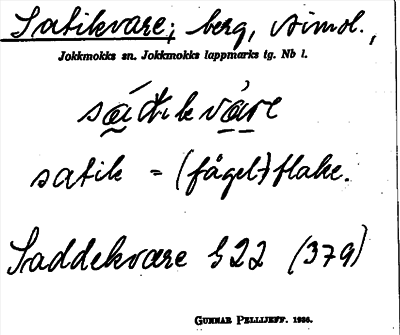 Satikvare; berg, simol.,
Jokkmokks sn. Jokkmokks lappmarks tg. Nb l.
sát́ikváre
satik = (fågel)flake.
Saddekvare § 22 (379)
GUNNAR PELLIJEFF. 1956.